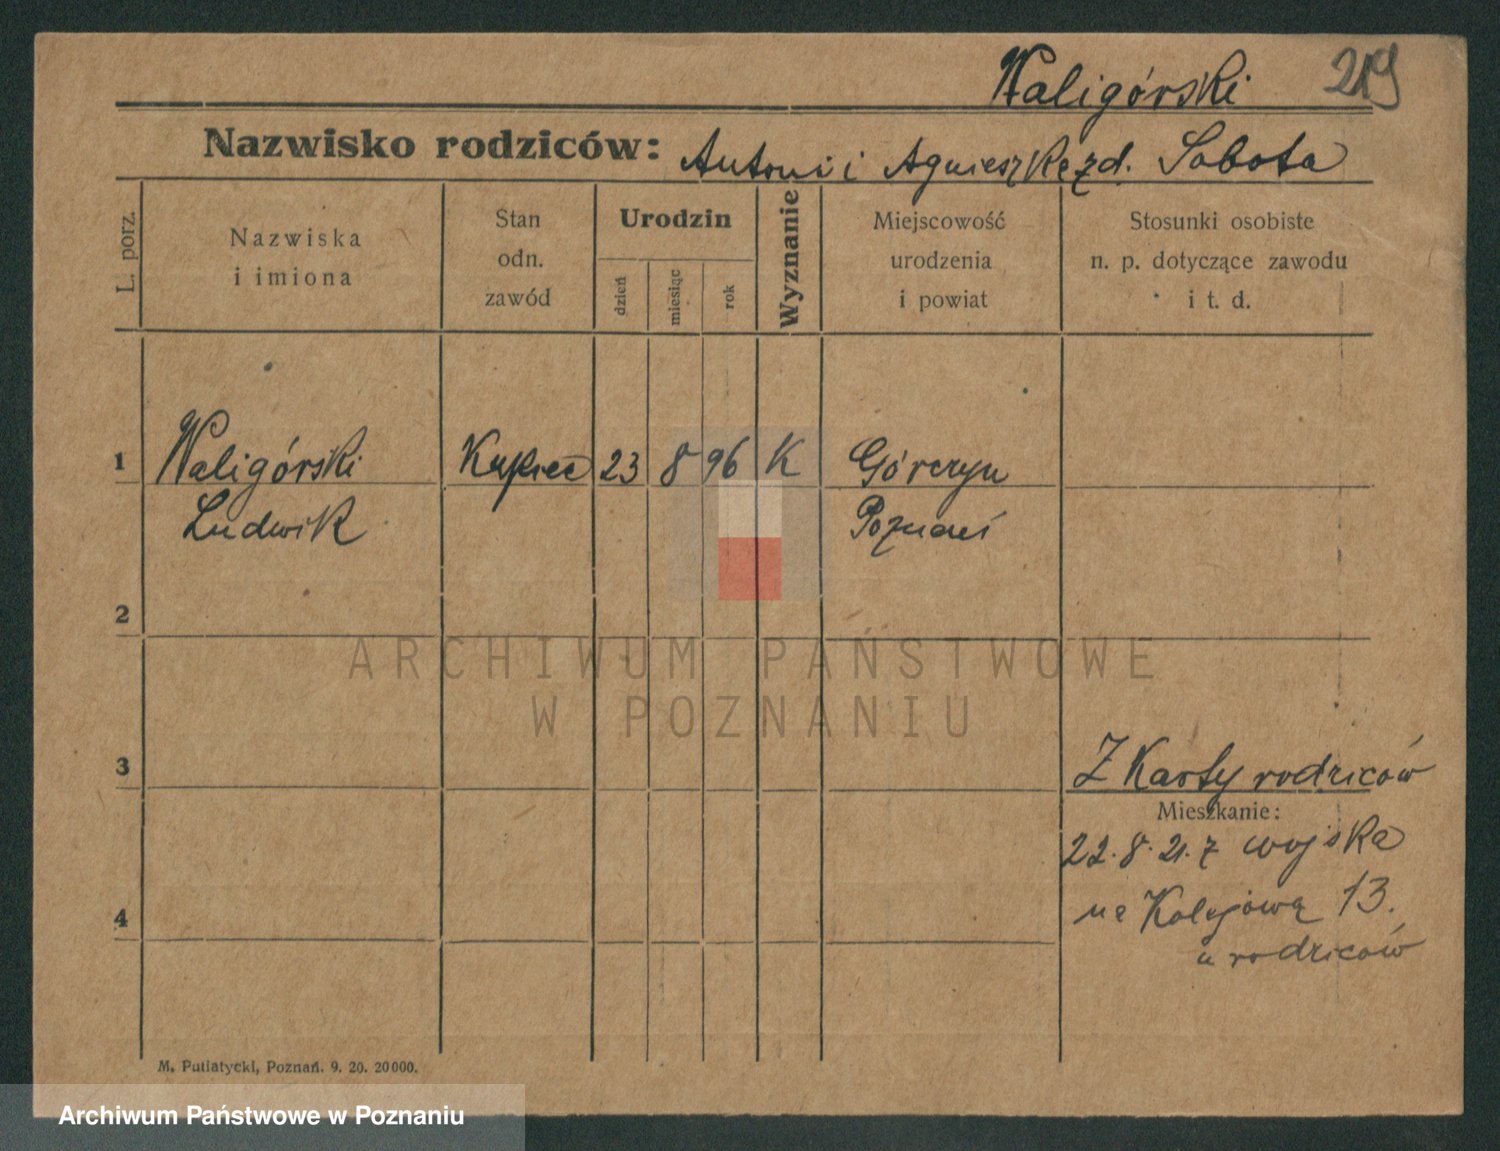 Waligórski 219
Nazwisko rodziców: Antoni i Agnieszka z d. Sobota
L. porz.
Nazwiska
i imiona
Stan
odn.
zawód
Urodzin
dzień
miesiąc
rok
Wyznanie
Miejscowość
urodzenia
i powiat
Stosunki osobiste
n. p. dotyczące zawodu
i t. d.
1 Waligórski Kupiec 23 8 96 K Górczyn
Ludwik Poznań
2
ARCHIWUM PAŃSTWOWE
W POZNANIU
3 Z Karty rodziców
Mieszkanie:
22.8.21. z wojska
4 na Kolejową 13.
u rodziców
M. Putiatycki, Poznań. 9. 20. 20000.
Archiwum Państwowe w Poznaniu